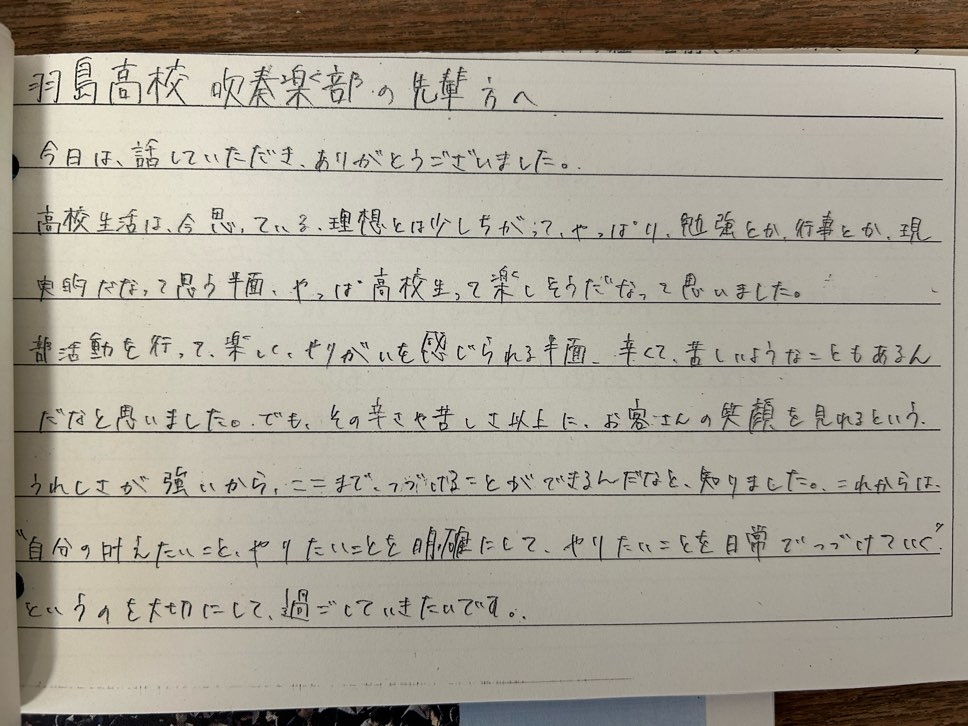 羽島高校 吹奏楽部の先輩方へ
今日は、話していただき、ありがとうございました。
高校生活は、今思っている、理想とは少しちがって、やっぱり、勉強とか、行事とか、現
実的だなって思う半面、やっぱ高校生って楽しそうだなって思いました。
部活動を行って、楽しく、やりがいを感じられる半面、辛くて、苦しいようなこともあるん
だなと思いました。でも、その辛さや苦しさ以上に、お客さんの笑顔を見れるという、
うれしさが強いから、ここまで、つづけることができるんだなと、知りました。これからは、
"自分の叶えたいこと、やりたいことを明確にして、やりたいことを日常でつづけていく"
というのを大切にして、過ごしていきたいです。